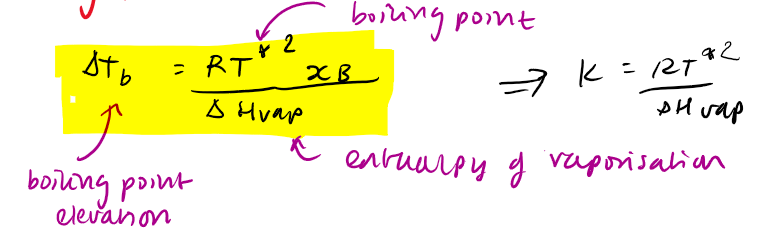 boiling point
ΔTb = RT*² xB / ΔHvap ⇒ K = RT*² / ΔHvap
enthalpy of vaporisation
boiling point
elevation